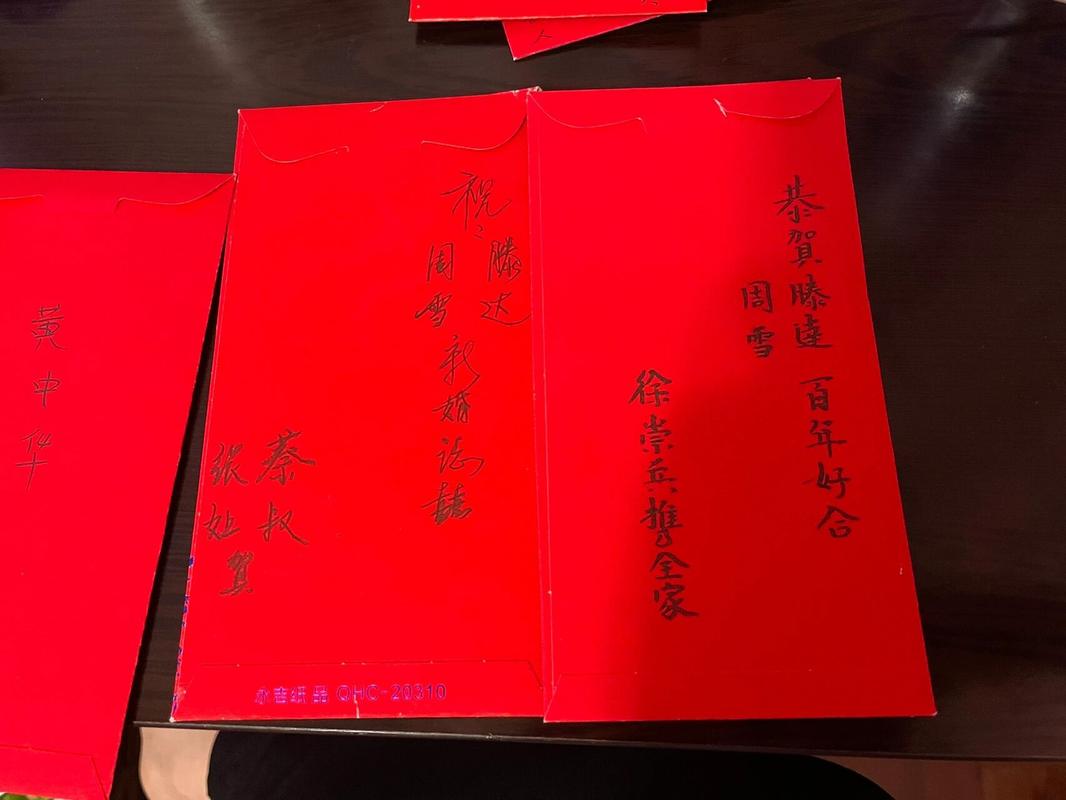 人
黄中华
祝
滕达
周雪
新婚誌囍
蔡叔
张姐
賀
永吉纸品 QHC-20310
恭賀滕達
周雪
百年好合
徐崇兵携全家